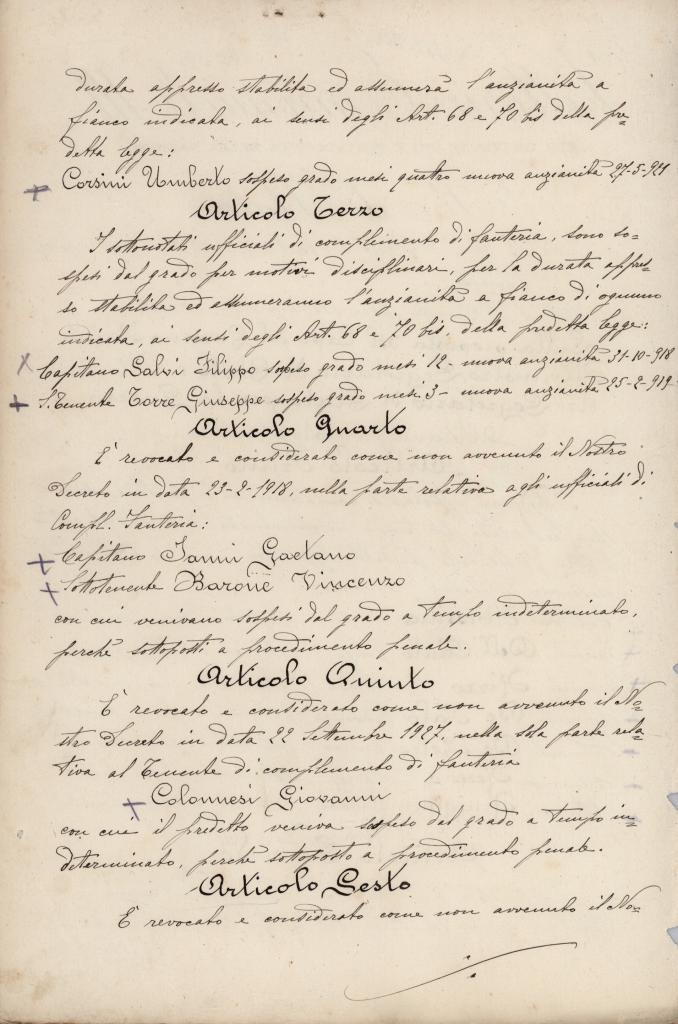 durata appresso stabilita ed assumerà l'anzianità a
fianco indicata, ai sensi degli Art. 68 e 70 bis della pre=
detta legge:
+ Corsini Umberto sospeso grado mesi quattro nuova anzianità 27-5-921
Articolo Terzo
I sottonotati ufficiali di complimento di fanteria, sono so=
spesi dal grado per motivi disciplinari, per la durata appres=
so stabilita ed assumeranno l'anzianità a fianco di ognuno
indicata, ai sensi degli Art. 68 e 70 bis, della predetta legge:
x Capitano Salvi Filippo sospeso grado mesi 12 - nuova anzianità 31-10-918
+ S. Tenente Torre Giuseppe sospeso grado mesi 3 - nuova anzianità 25-2-919
Articolo Quarto
È revocato e considerato come non avvenuto il Nostro
Decreto in data 23-2-1918, nella parte relativa agli ufficiali di
Compl. Fanteria:
+ Capitano Ianni Gaetano
+ Sottotenente Barone Vincenzo
con cui venivano sospesi dal grado a tempo indeterminato,
perchè sottoposti a procedimento penale.
Articolo Quinto
È revocato e considerato come non avvenuto il No=
stro Decreto in data 22 Settembre 1927, nella sola parte rela=
tiva al Tenente di complemento di fanteria
+ Colonnesi Giovanni
con cui il predetto veniva sospeso dal grado a tempo in=
determinato, perchè sottoposto a procedimento penale.
Articolo Sesto
È revocato e considerato come non avvenuto il No=